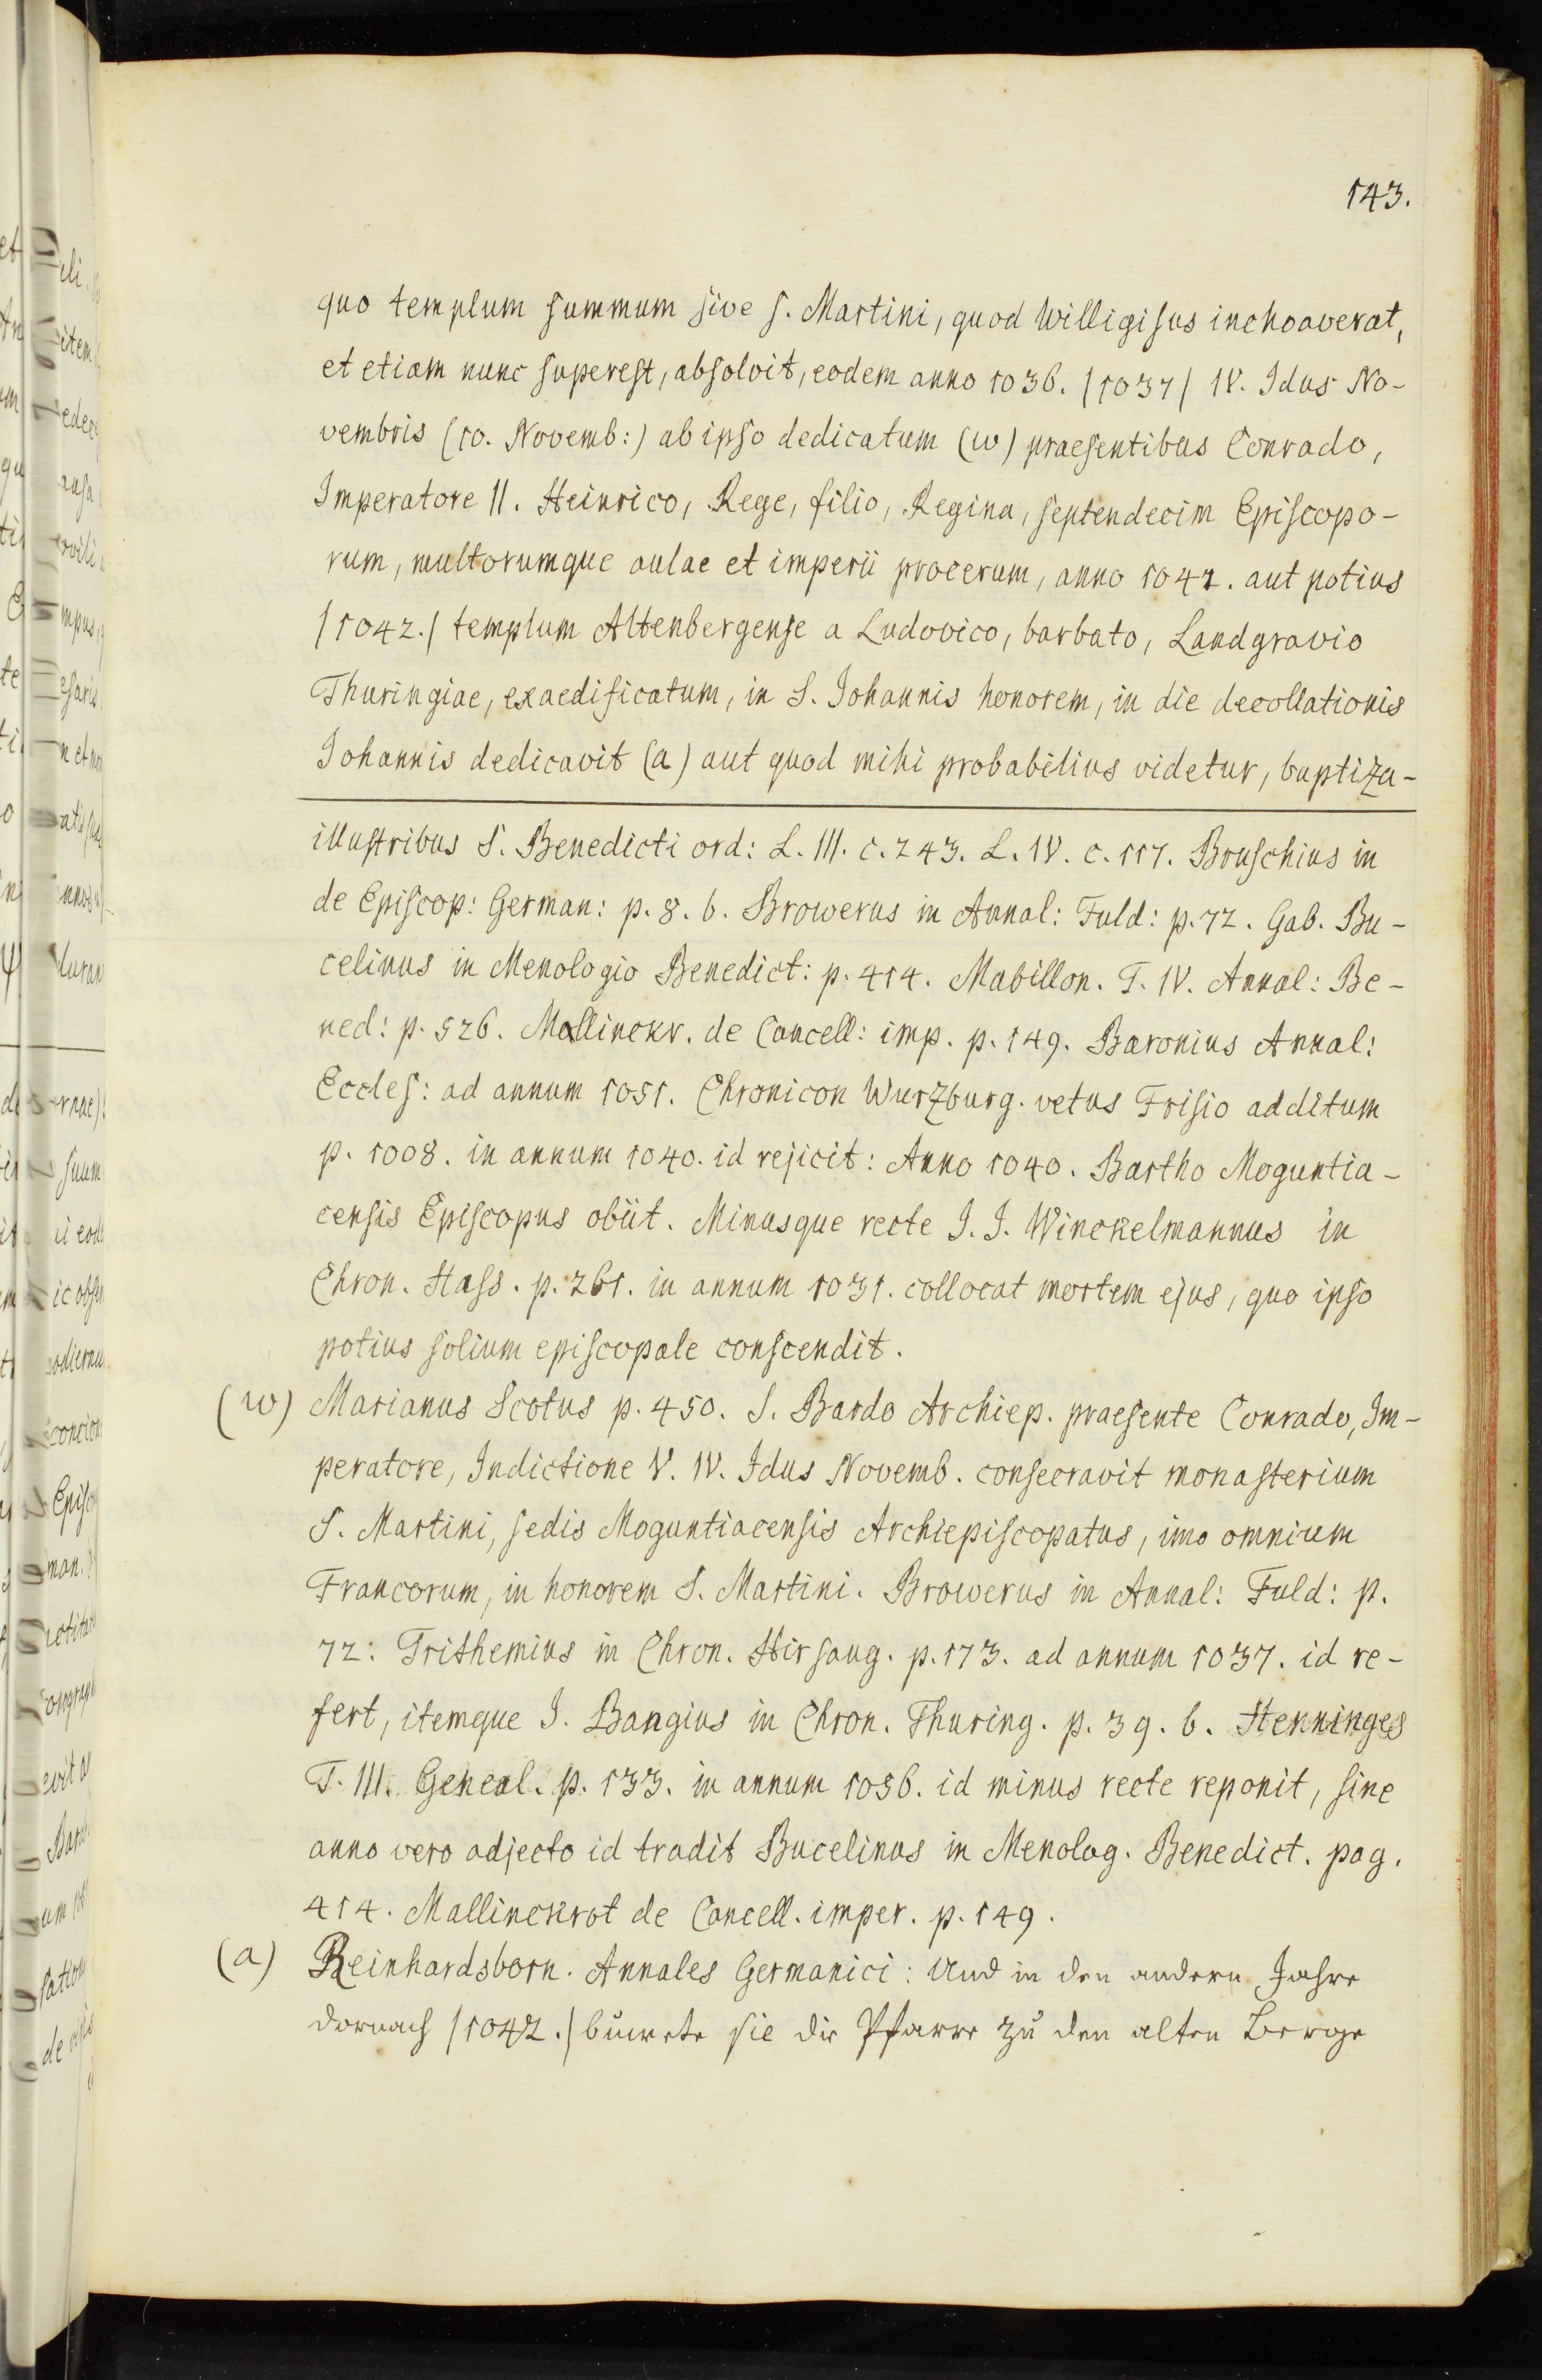 143.
quo templum summum sive S. Martini, quod Willigisus inchoaverat,
et etiam nunc superest, absolvit, eodem anno 1036. /1037/ IV. Idus No-
vembris (10. Novemb:) ab ipso dedicatum (w) praesentibus Conrado,
Imperatore II. Heinrico, Rege, filio, Regina, septendecim Episcopo-
rum, multorumque aulae et imperii procerum, anno 1041. aut potius
/1042./ templum Altenbergense a Ludovico, barbato, Landgravio
Thuringiae, exaedificatum, in S. Johannis honorem, in die decollationis
Johannis dedicavit (a) aut quod mihi probabilius videtur, baptiza-
illustribus S. Benedicti ord: L. III. c. 243. L. IV. c. 117. Bruschius in
de Episcop: German: p. 8. b. Browerus in Annal: Fuld: p. 72. Gab. Bu-
celinus in Menologio Benedict: p. 414. Mabillon. T. IV. Annal: Be-
ned: p. 526. Mallinckr. de Cancell: imp. p. 149. Baronius Annal:
Eccles: ad annum 1051. Chronicon Wurzburg. vetus Frisio additum
p. 1008. in annum 1040. id rejicit: Anno 1040. Bartho Moguntia-
censis Episcopus obiit. Minusque recte J. J. Winckelmannus in
Chron. Hass. p. 261. in annum 1031. collocat mortem ejus, quo ipso
potius solium episcopale conscendit.
(w) Marianus Scotus p. 450. S. Bardo Archiep. praesente Conrado, Im-
peratore, Indictione V. IV. Idus Novemb. consecravit monasterium
S. Martini, sedis Moguntiacensis Archiepiscopatus, imo omnium
Francorum, in honorem S. Martini. Browerus in Annal: Fuld: p.
72: Trithemius in Chron. Hirsaug. p. 173. ad annum 1037. id re-
fert, itemque J. Bangius in Chron. Thuring. p. 39. b. Henninges
T. III. Geneal. p. 133. in annum 1036. id minus recte reponit, sine
anno vero adjecto id tradit Bucelinus in Menolog. Benedict. pag.
414. Mallinckrot de Cancell. imper. p. 149.
(a) Reinhardsborn. Annales Germanici: Und in den andern Jahre
dornach /1042./ buwete sie die Pfarre zu den alten Berge